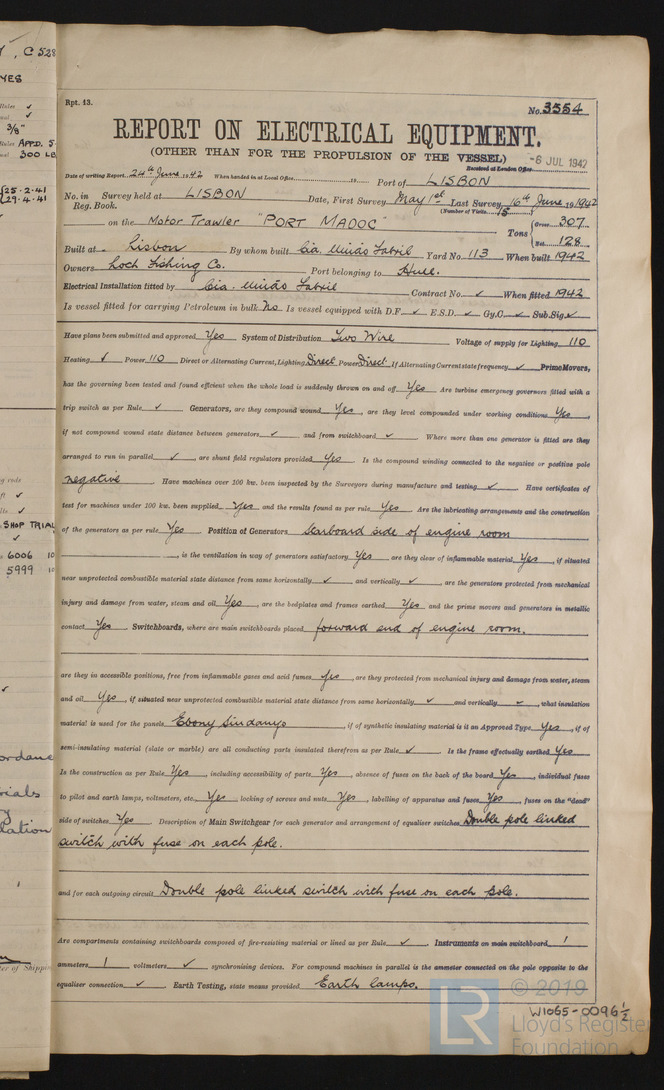 , C 528
YES
3/8"
APPD. 5
300 LB
25-2-41
29-4-41
SHOP TRIAL
6006 10
5999 10
ordance
rials
lation
ter of Shipping
Rpt. 13.
No. 3554
REPORT ON ELECTRICAL EQUIPMENT.
(OTHER THAN FOR THE PROPULSION OF THE VESSEL)
Received at London Office -6 JUL 1942
Date of writing Report 24th June 1942 When handed in at Local Office 19 Port of LISBON
No. in Survey held at LISBON Date, First Survey May 1st Last Survey 16th June 1942
Reg. Book. (Number of Visits 15)
on the Motor Trawler "PORT MADOC" Tons { Gross 307
Net 128
Built at Lisbon By whom built Cia. União Fabril Yard No. 113 When built 1942
Owners Loch Fishing Co. Port belonging to Hull.
Electrical Installation fitted by Cia. União Fabril Contract No. ✓ When fitted 1942
Is vessel fitted for carrying Petroleum in bulk No Is vessel equipped with D.F. ✓ E.S.D. ✓ Gy.C. ✓ Sub.Sig. ✓
Have plans been submitted and approved Yes System of Distribution Two Wire Voltage of supply for Lighting 110
Heating ✓ Power 110 Direct or Alternating Current, Lighting Direct Power Direct If Alternating Current state frequency ✓ Prime Movers,
has the governing been tested and found efficient when the whole load is suddenly thrown on and off Yes Are turbine emergency governors fitted with a
trip switch as per Rule ✓ Generators, are they compound wound Yes, are they level compounded under working conditions Yes,
if not compound wound state distance between generators ✓ and from switchboard ✓ Where more than one generator is fitted are they
arranged to run in parallel ✓, are shunt field regulators provided Yes Is the compound winding connected to the negative or positive pole
negative Have machines over 100 kw. been inspected by the Surveyors during manufacture and testing ✓ Have certificates of
test for machines under 100 kw. been supplied Yes and the results found as per rule Yes Are the lubricating arrangements and the construction
of the generators as per rule Yes Position of Generators Starboard side of engine room
, is the ventilation in way of generators satisfactory Yes are they clear of inflammable material Yes, if situated
near unprotected combustible material state distance from same horizontally ✓ and vertically ✓, are the generators protected from mechanical
injury and damage from water, steam and oil Yes, are the bedplates and frames earthed Yes and the prime movers and generators in metallic
contact Yes Switchboards, where are main switchboards placed forward end of engine room.
are they in accessible positions, free from inflammable gases and acid fumes Yes, are they protected from mechanical injury and damage from water, steam
and oil Yes, if situated near unprotected combustible material state distance from same horizontally ✓ and vertically ✓, what insulation
material is used for the panels Ebony Sindanyo, if of synthetic insulating material is it an Approved Type Yes, if of
semi-insulating material (slate or marble) are all conducting parts insulated therefrom as per Rule ✓ Is the frame effectually earthed Yes
Is the construction as per Rule Yes, including accessibility of parts Yes, absence of fuses on the back of the board Yes, individual fuses
to pilot and earth lamps, voltmeters, etc. Yes locking of screws and nuts Yes, labelling of apparatus and fuses Yes, fuses on the "dead"
side of switches Yes Description of Main Switchgear for each generator and arrangement of equaliser switches Double pole linked
switch with fuse on each pole.
and for each outgoing circuit Double pole linked switch with fuse on each pole.
Are compartments containing switchboards composed of fire-resisting material or lined as per Rule ✓ Instruments on main switchboard 1
ammeters 1 voltmeters ✓ synchronising devices. For compound machines in parallel is the ammeter connected on the pole opposite to the
equaliser connection ✓ Earth Testing, state means provided Earth lamps.
© 2019
LR Lloyd's Register
Foundation
W1065-0096 1/2